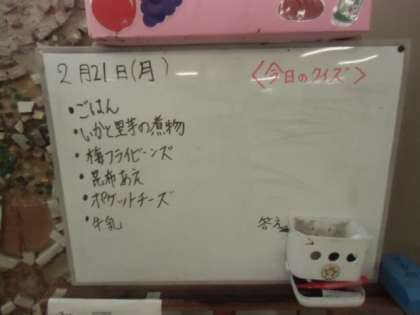 2月21日(月)
〈今日のクイズ〉
・ごはん
・いかと里芋の煮物
・梅フライビーンズ
・昆布あえ
・ポケットチーズ
・牛乳
答え